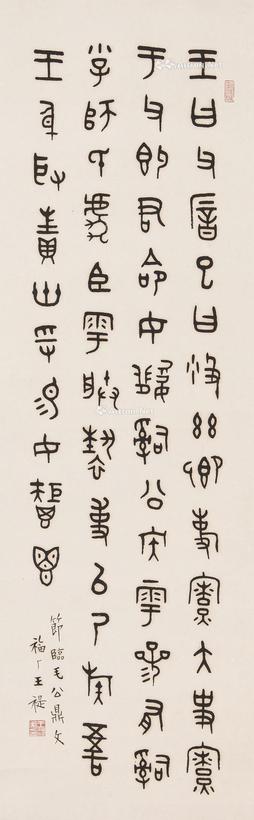 王曰父厝已曰彶茲卿事寮大史寮
于父即君命女𤔲公族雩參有𤔲
小子師氏虎臣雩朕褻事以乃族干吾
王身取卅寽易女秬鬯
節臨毛公鼎文
福厂王禔
Artron.Net